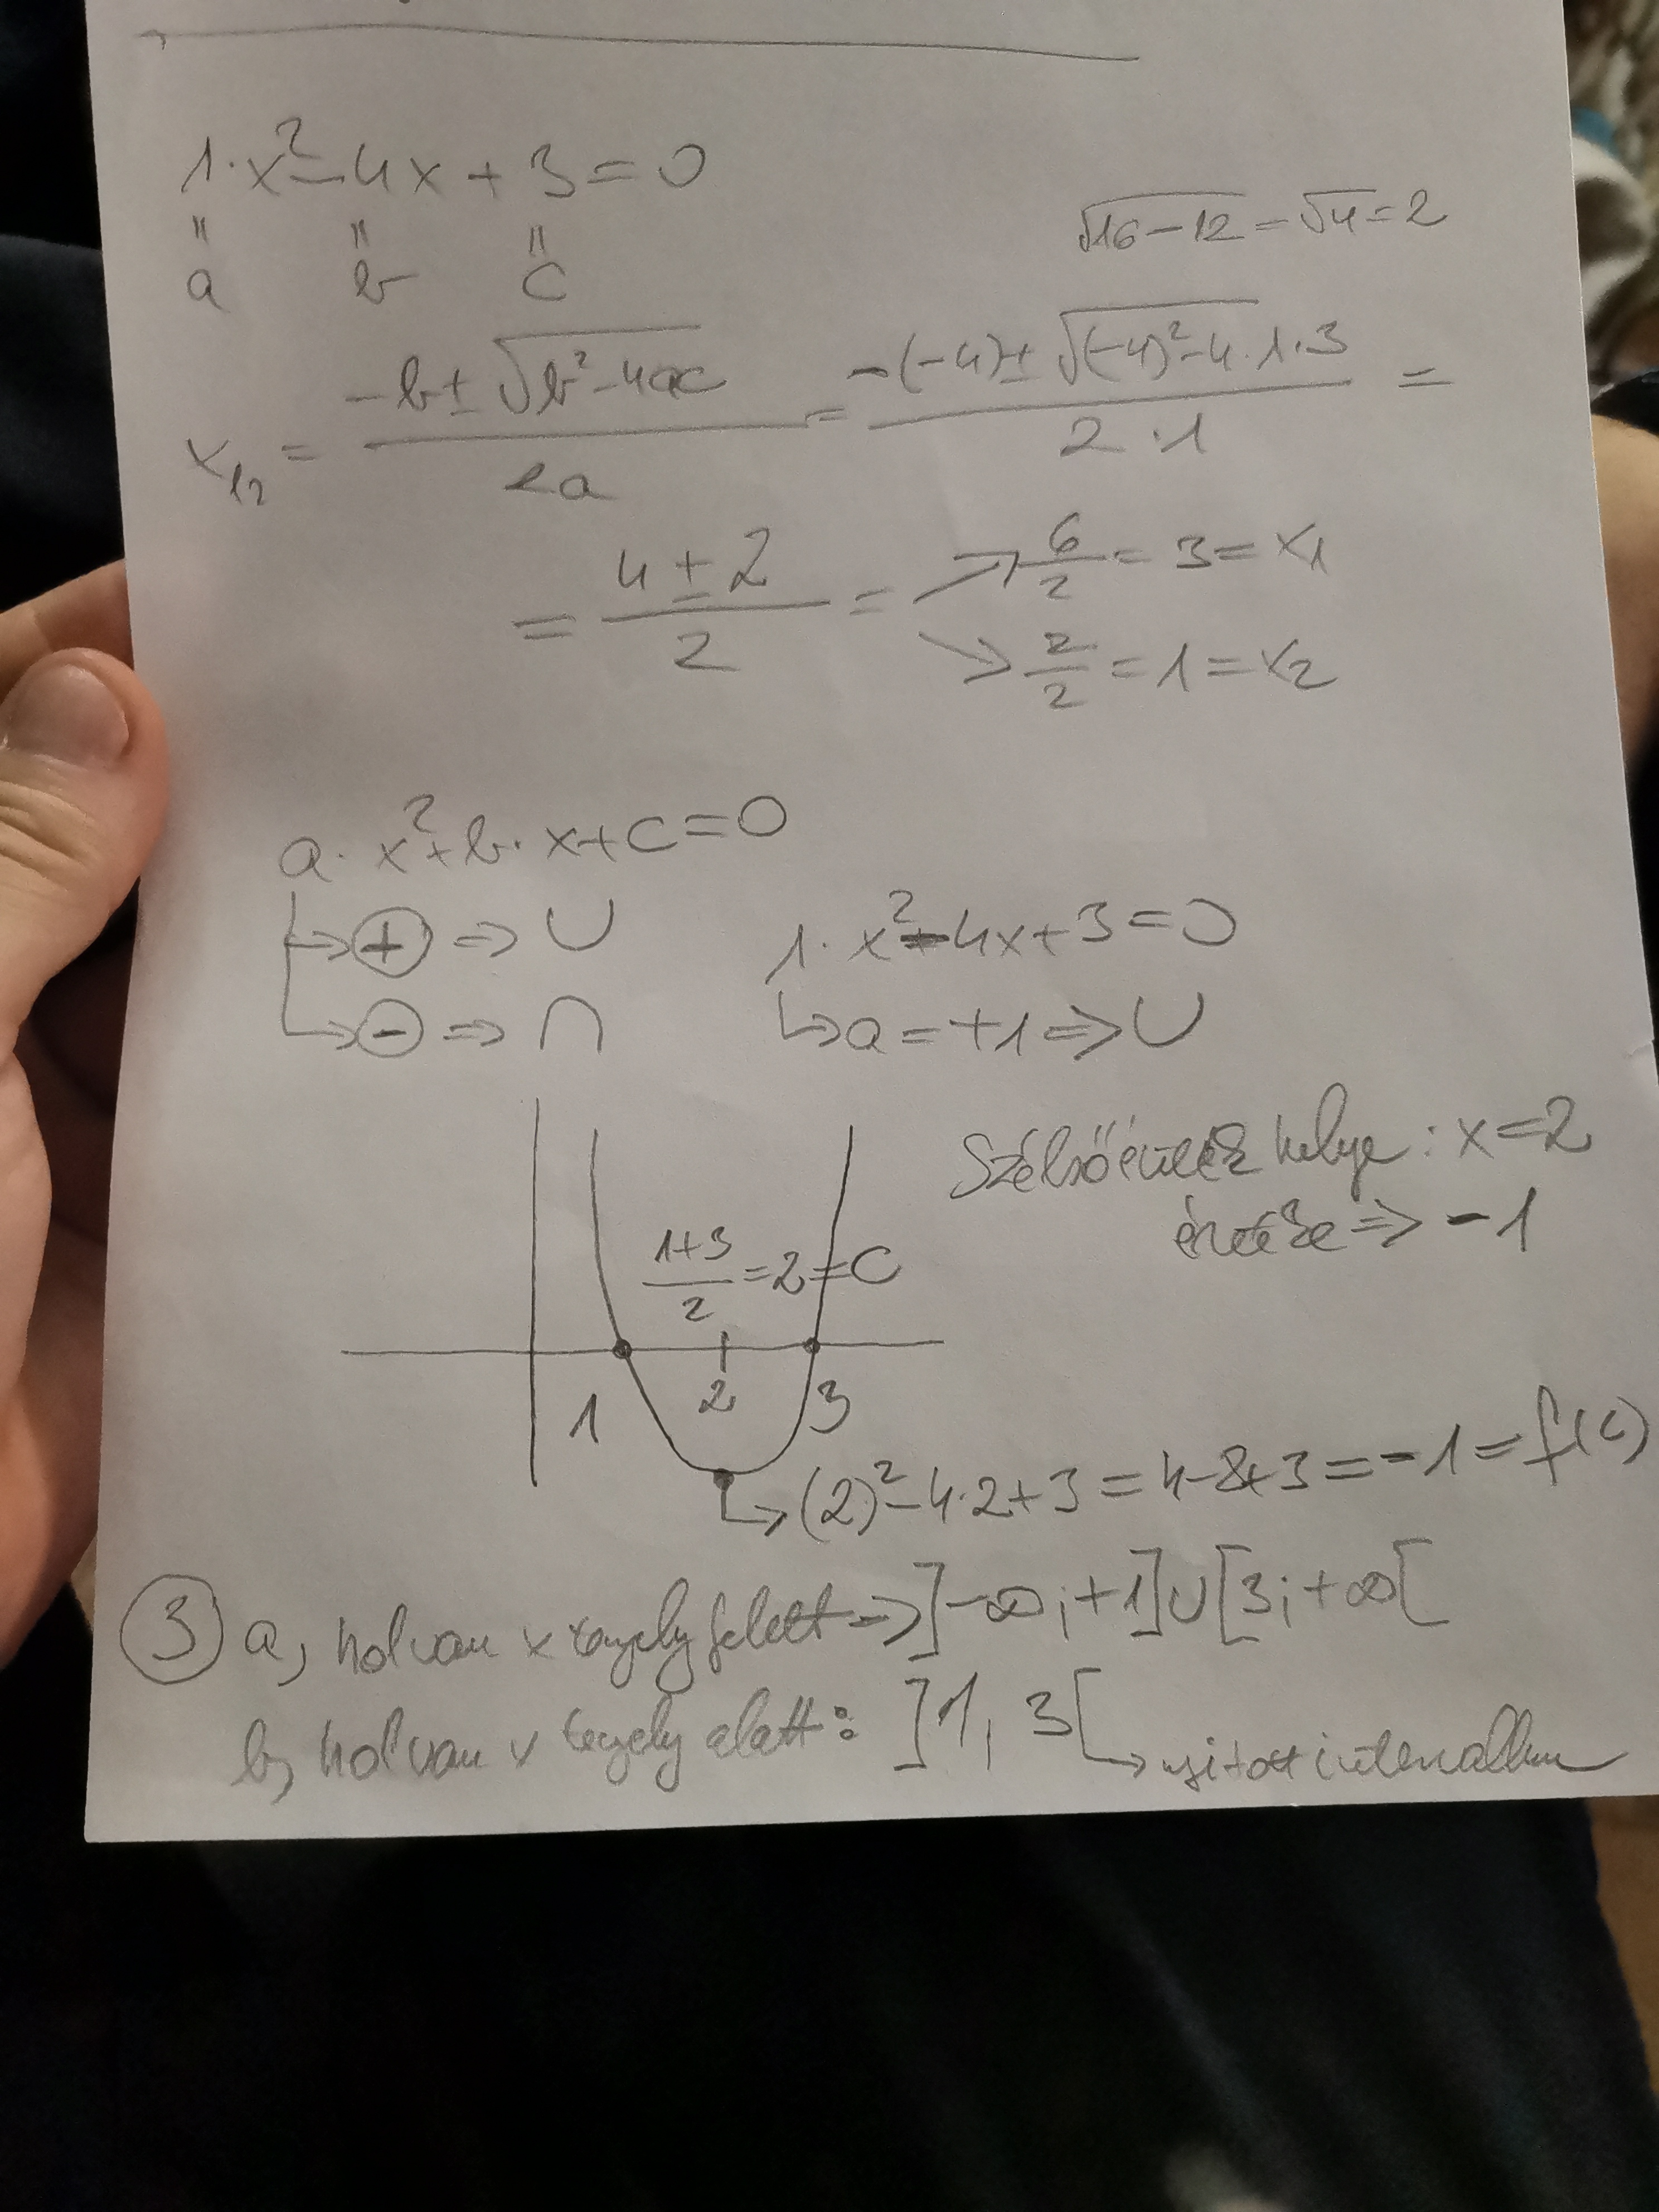 1·x²-4x+3=0
" " "
a b c
√16-12=√4=2
x₁₂ = (-b±√b²-4ac)/2a = (-(-4)±√(-4)²-4·1·3)/2·1 =
= (4±2)/2 = → 6/2 = 3 = x₁
→ 2/2 = 1 = x₂
a·x²+b·x+c=0
→ + ⇒ ∪
→ - ⇒ ∩
1·x²-4x+3=0
↳ a=+1⇒∪
Szélsőérték helye: x=2
értéke ⇒ -1
(1+3)/2=2=C
1 2 3
↳ (2)²-4·2+3=4-8+3=-1=f(c)
③ a, hol van x tengely felett ⇒ ]-∞;+1]∪[3;+∞[
b, hol van x tengely alatt: ]1, 3[ → nyitott intervallum